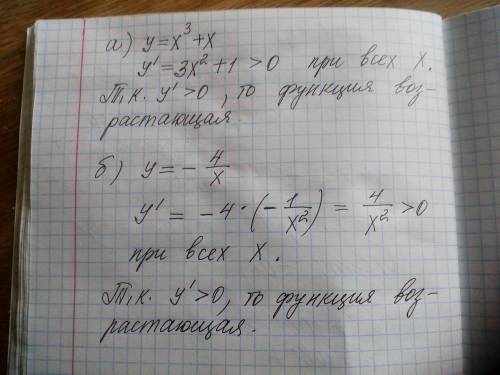 а) y = x³ + x
y' = 3x² + 1 > 0 при всех x.
Т.к. y' > 0, то функция воз-
растающая.
б) y = - 4/x
y' = -4 · (- 1/x²) = 4/x² > 0
при всех x.
Т.к. y' > 0, то функция воз-
растающая.